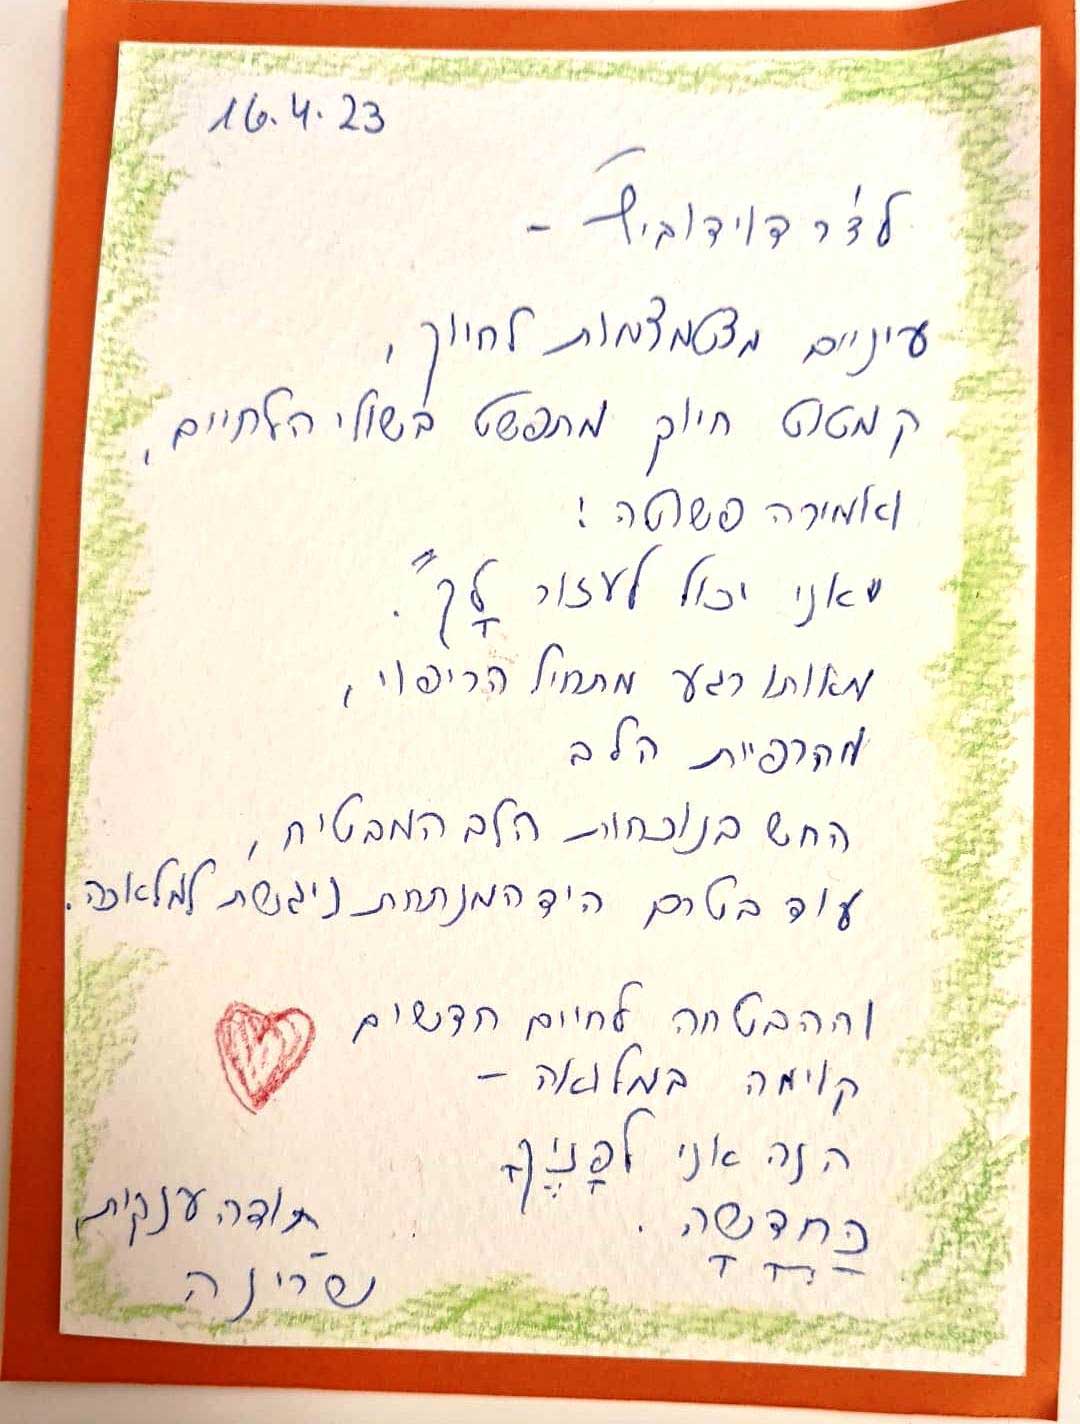 16.4.23
לד״ר דוידוביץ׳ -
עיניים מצטמצמות לחיוך,
קמטוט חיוך מתפשט בשולי הלחיים,
ואמירה פשוטה:
"אני יכול לעזור לָךְ".
מאותו רגע מתחיל הריפוי,
מהרפיית הלב
החש בנוכחות הלב המבטיח,
עוד בטרם היד המנתחת ניגשת למלאכה.
וההבטחה לחיים חדשים
קוימה במלואה -
הנה אני לפָנֶיךָ
כַּחֲדָשָׁה.
תודה ענקית,